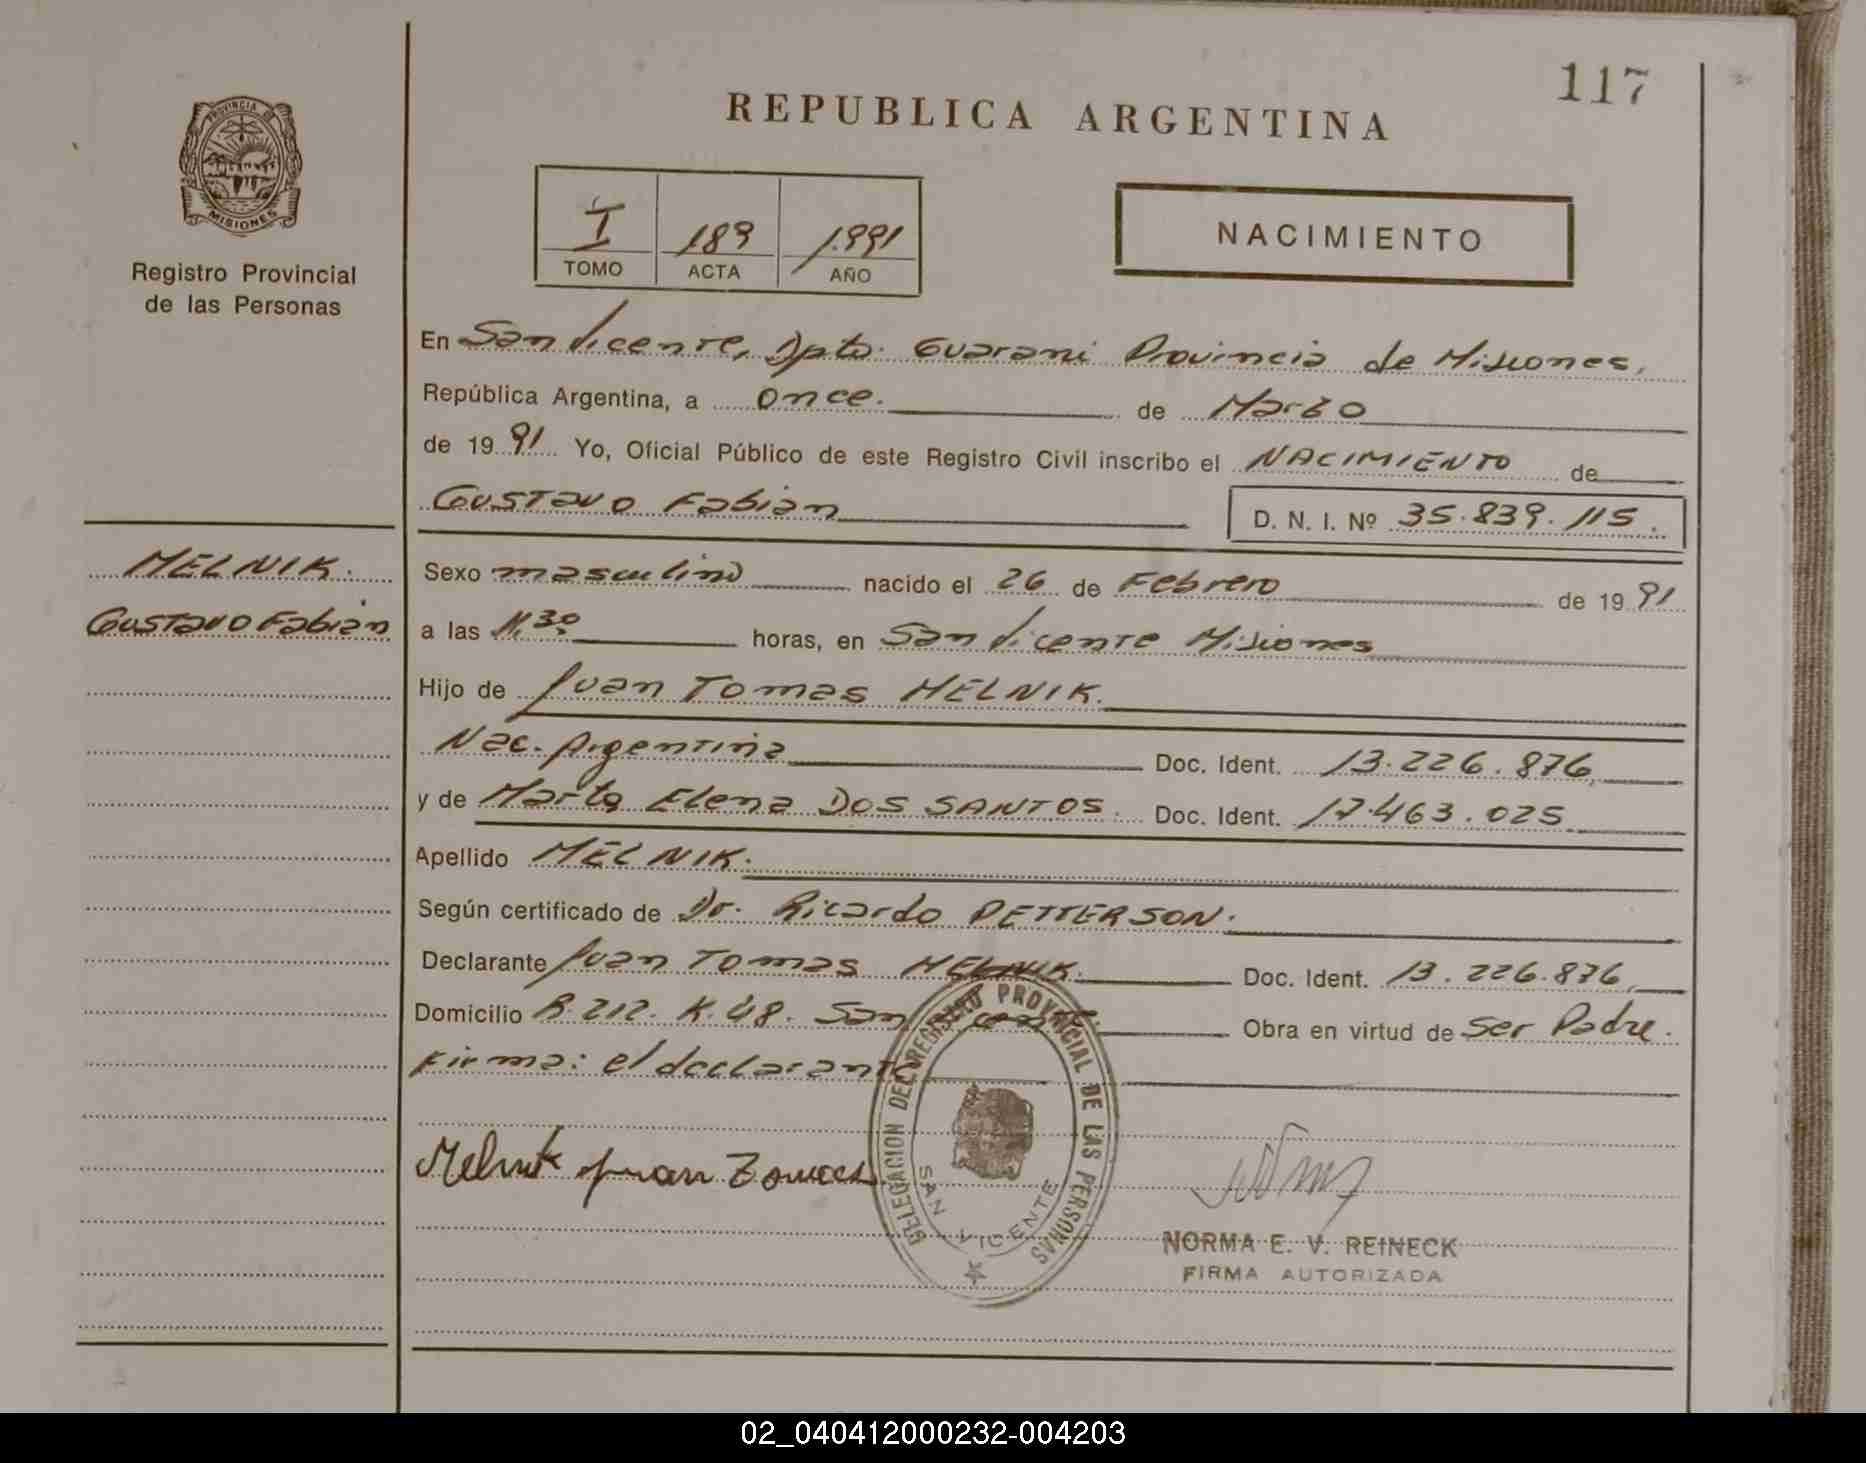 117
REPUBLICA ARGENTINA
PROVINCIA DE
MISIONES
Registro Provincial
de las Personas
I 189 1991
TOMO ACTA AÑO
NACIMIENTO
En San Vicente, Dpto. Guarani Provincia de Misiones,
República Argentina, a once. de Marzo
de 19 91 Yo, Oficial Público de este Registro Civil inscribo el NACIMIENTO de
Gustavo Fabian D. N. I. Nº 35.839.115.
MELNIK.
Gustavo Fabian
Sexo masculino nacido el 26 de Febrero de 19 91
a las 11.30 horas, en San Vicente Misiones
Hijo de Juan Tomas MELNIK.
Nac. Argentina Doc. Ident. 13.226.876,
y de Marta Elena DOS SANTOS. Doc. Ident. 17.463.025
Apellido MELNIK.
Según certificado de Dr. Ricardo PETTERSON.
Declarante Juan Tomas MELNIK. Doc. Ident. 13.226.876,
Domicilio R.212. K.48. San Vicente. Obra en virtud de ser Padre.
Firma: el declarante
Melnik Juan Tomas
DELEGACION DEL REGISTRO PROVINCIAL DE LAS PERSONAS
SAN VICENTE
NORMA E. V. REINECK
FIRMA AUTORIZADA
02_040412000232-004203